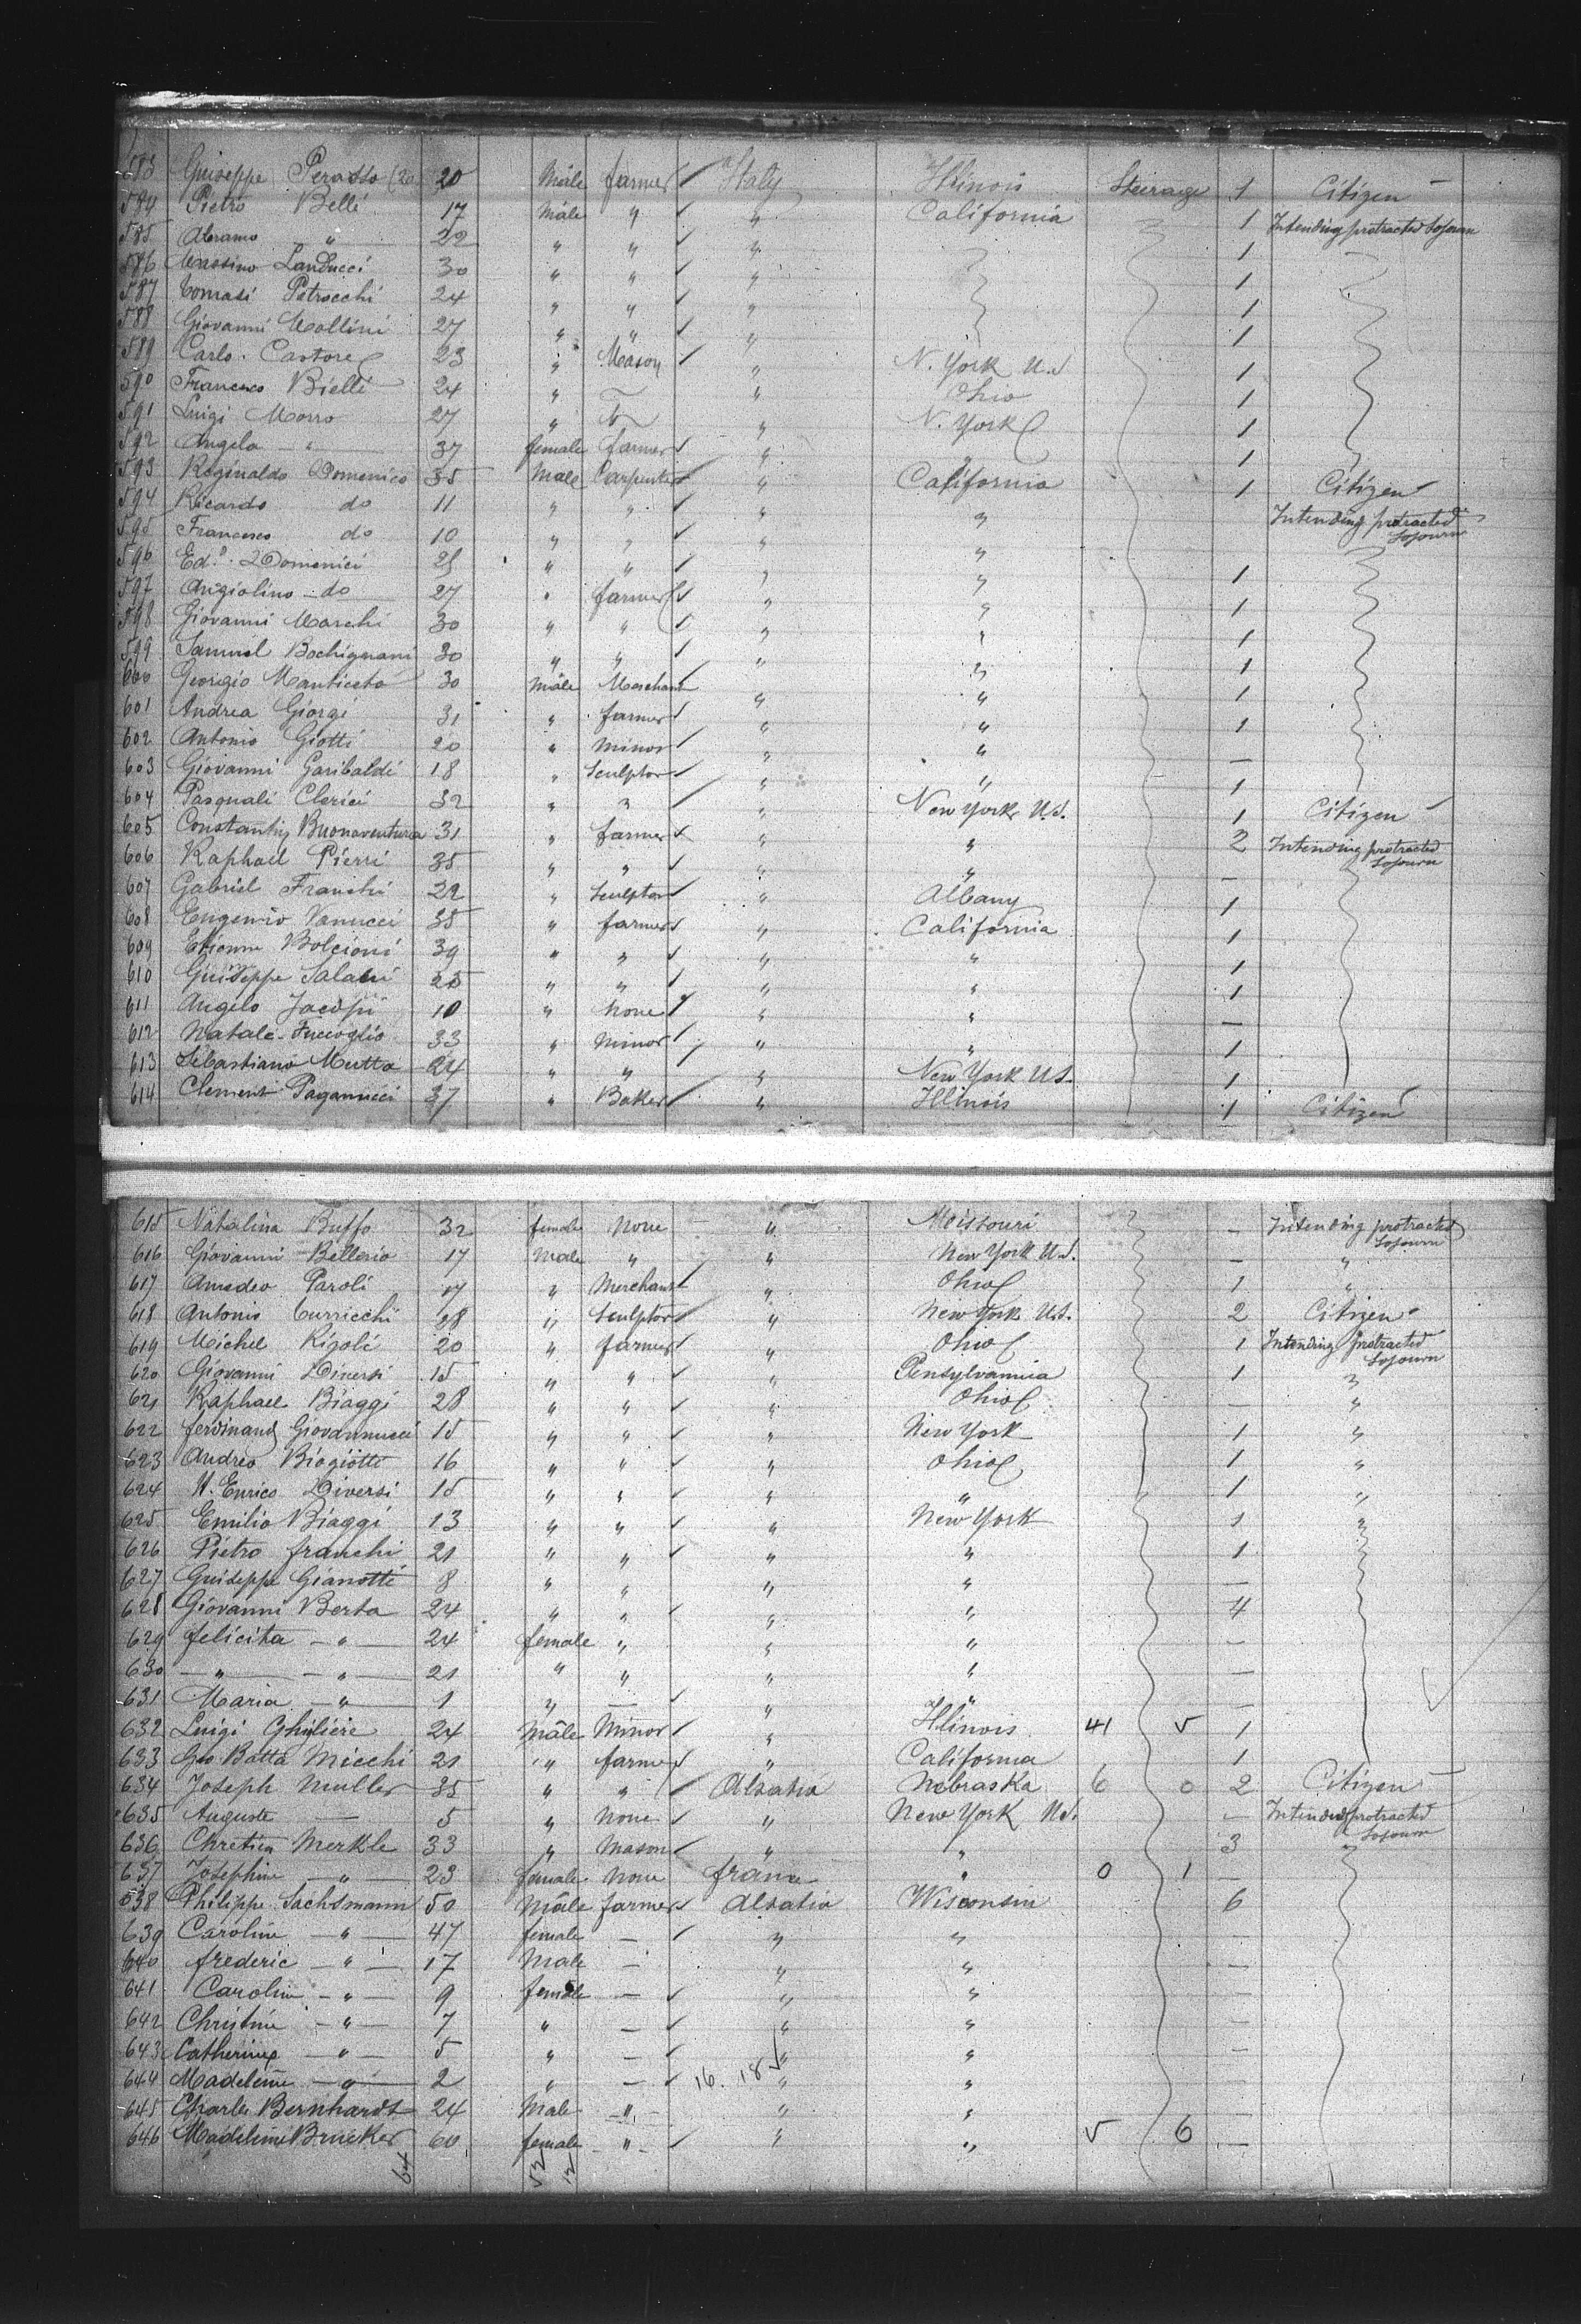 583 Guiseppe Perasso (20 20 Male farmer Italy Illinois Steerage 1 Citizen
584 Pietro Belli 17 Male " " California 1 Intending protracted Sojourn
585 Abramo " 22 " " " 1
586 Massino Landucci 30 " " " 1
587 Tomasi Petrocchi 24 " " " 1
588 Giovanni Mollini 27 " " " 1
589 Carlo Castore 23 " Mason " N. York U.S 1
590 Francesco Bielli 24 " " Ohio 1
591 Luigi Morro 27 " " N. York 1
592 Angela " 37 female farmer " " 1
593 Reginaldo Domenico 35 Male Carpenter " California 1 Citizen
594 Ricardo do 11 " " " " Intending protracted Sojourn
595 Francesco do 10 " " " "
596 Ed.º Domenici 25 " " " " 1
597 Angiolino do 27 " farmer " " 1
598 Giovanni Marchi 30 " " " " 1
599 Samuel Bochignani 30 " " " " 1
600 Georgio Manticeto 30 Male Merchant " " 1
601 Andrea Giorgi 31 " farmer " " 1
602 Antonio Giotti 20 " Minor " " —
603 Giovanni Garibaldi 18 " Sculptor " " 1
604 Pasquali Clerici 32 " " " New York U.S. 1 Citizen
605 Constantin Buonaventura 31 " farmer " " 2 Intending protracted Sojourn
606 Raphael Pierri 35 " " " " —
607 Gabriel Franchi 32 " Sculptor " Albany 1
608 Eugenio Vanucci 35 " farmer " California 1
609 Etienne Bolcioni 39 " " " " 1
610 Guiseppe Salani 25 " " " " 1
611 Angelo Jacopii 10 " None " " —
612 Natale 33 " Minor " " 1
613 Sebastiano Mutto 24 " " " New York U.S. 1
614 Clement Paganucci 37 " Baker " Illinois 1 Citizen
615 Natalina Buffo 32 female None — " Missouri — Intending protracted Sojourn
616 Giovanni Bellerio 17 Male " " New York U.S. — "
617 Amedeo Paroli 17 " Merchant " Ohio 1 "
618 Antonio Curricchi 28 " Sculptor " New York U.S. 2 Citizen
619 Michel Rigoli 20 " farmer " Ohio 1 Intending protracted Sojourn
620 Giovanni Diversi 15 " " " Pensylvannia 1 "
621 Raphael Biaggi 28 " " " Ohio — "
622 ferdinand Giovannucci 15 " " " New York 1 "
623 Andrea Biagiotti 16 " " " Ohio 1 "
624 H. Enrico Diversi 15 " " " " 1 "
625 Emilio Biaggi 13 " " " New York 1 "
626 Pietro franchi 21 " " " " 1 "
627 Guiseppe Gianotti 8 " " " " —
628 Giovanni Berta 24 " " " " 4
629 felicita — " — 24 female " " " —
630 — " — " — 21 " " " " —
631 Maria — " — 1 " — " " —
632 Luigi Ghiglieri 24 Male Minor " Illinois 41 5 1
633 Gio Batta Micchi 21 " farmer " California 1
634 Joseph Muller 35 " " Alsatia Nebraska 6 0 2 Citizen
635 Auguste — 5 " None " New York U.S. — Intending protracted Sojourn
636 Chretien Merkle 33 " Mason " " 3 "
637 Josephine — " — 23 female None france " 0 1 —
638 Philippe Sachsmann 50 Male farmer Alsatia Wisconsin 6
639 Caroline — " — 47 female — " " —
640 frederic — " — 17 Male — " " —
641 Caroline — " — 9 female — " " —
642 Christine — " — 7 " — " " —
643 Catherine — " — 5 " — " " —
644 Madeleine — " — 2 " — 16. 18 " " —
645 Charles Bernhardt 24 Male — " — " " —
646 Madeleine Brucker 60 female — " — " " 5 6 —
64 52 12